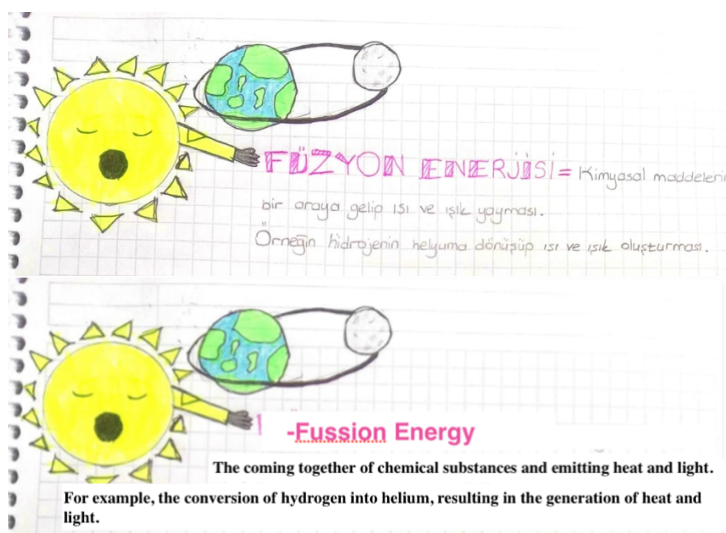 FÜZYON ENERJİSİ = Kimyasal maddelerin
bir araya gelip ısı ve ışık yayması.
Örneğin hidrojenin helyuma dönüşüp ısı ve ışık oluşturması.
-Fussion Energy
The coming together of chemical substances and emitting heat and light.
For example, the conversion of hydrogen into helium, resulting in the generation of heat and
light.